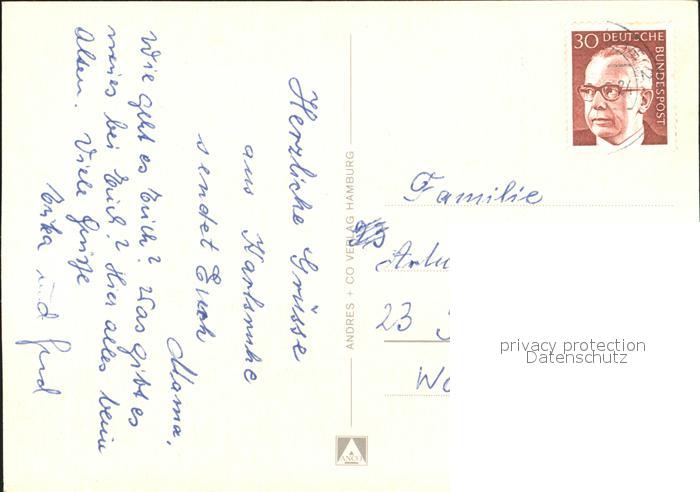 Herzliche Grüsse
aus Karlsruhe
sendet Euch
Mama.
Wie geht es Euch? Was gibt es
neues bei Euch? Hier alles beim
Alten. Viele Grüße
Erika und Gerd
ANDRES + CO VERLAG HAMBURG
ANCO
30 DEUTSCHE BUNDESPOST
Familie
23
privacy protection
Datenschutz